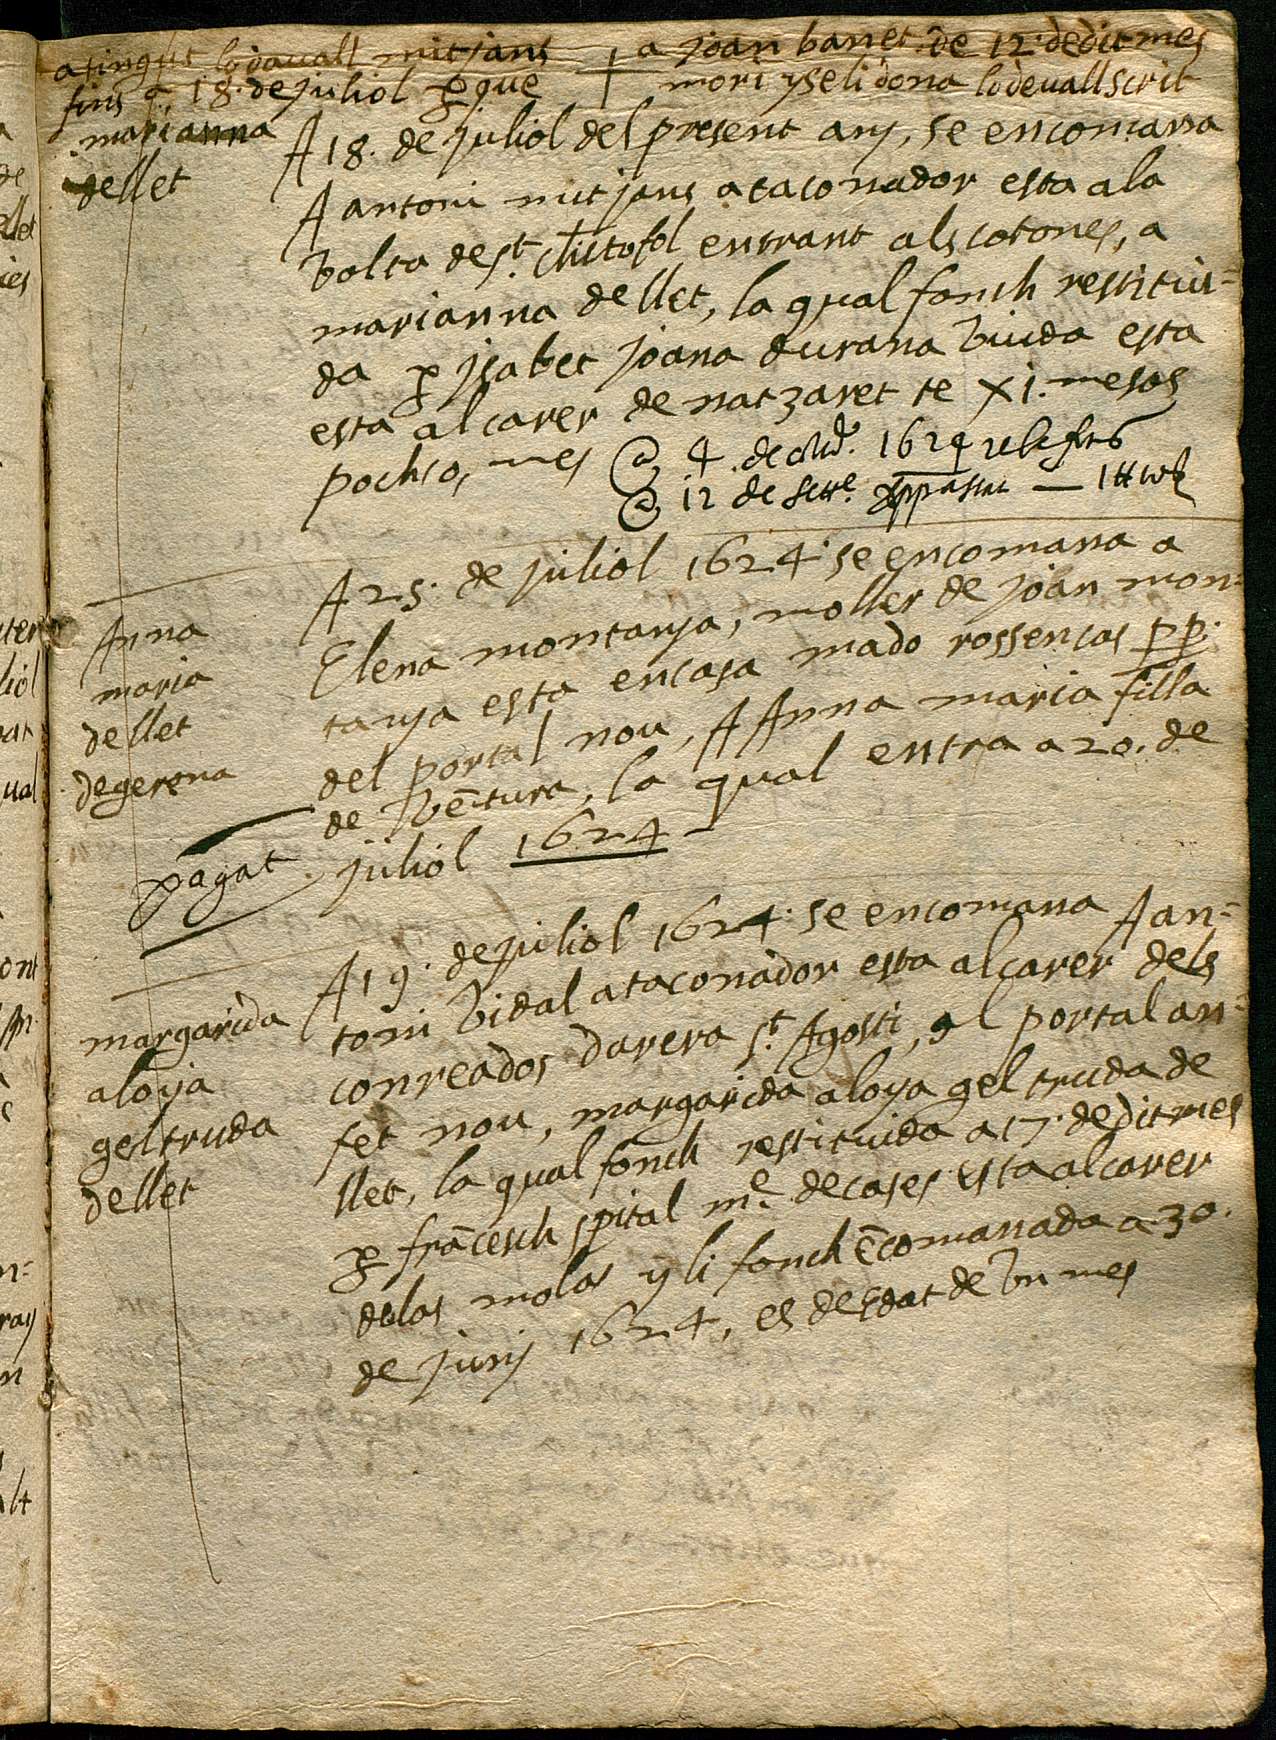 a tingut lo davall mitjans
fins a 18. de juliol p que
a joan barret de 12. de dit mes
mori y se li dona lo devall scrit
marianna
de llet
A 18. de juliol del present any, se encomana
A antoni mitjans ataconador esta a la
volta de st. christofol entrant als cotoners, a
marianna de llet, la qual fonch restitui-
da p isabet joana durana viuda esta
esta al carer de natzaret te XI. mesos
poch so, mes
@ 4 de 1624
@ 12 de
Anna
maria
de llet
de gerona
pagat
A 25. de juliol 1624. se encomana a
Elena montanya, moller de joan mon-
tanya esta en casa mado rossencas pp.
del portal nou, A Anna maria filla
de vētura, la qual entra a 20. de
juliol 1624
margarida
aloya
geltruda
de llet
A 19. de juliol 1624. se encomana A an-
toni vidal ataconador esta al carer dels
conreados darera st. Agosti, al portal an-
fet nou, margarida aloya geltruda de
llet, la qual fonch restituida a 17. de dit mes
p frācesch spital me. de cases esta al carer
de las molas y li fonch ēcomanada a 30.
de juny 1624, es de edat de vn mes